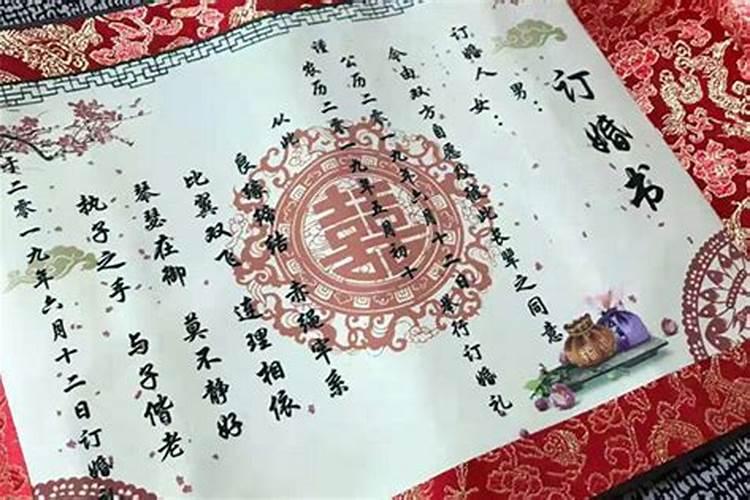 订婚书
男：
订婚人
女：
今由双方自愿及此长辈之同意
公历二零一九年六月十二日举行订婚礼
谨农历二零一九年五月初十
从此
良缘缔结 赤绳牢系
比翼双飞 连理相依
琴瑟在御 莫不静好
执子之手 与子偕老
于二零一九年六月十二日订婚